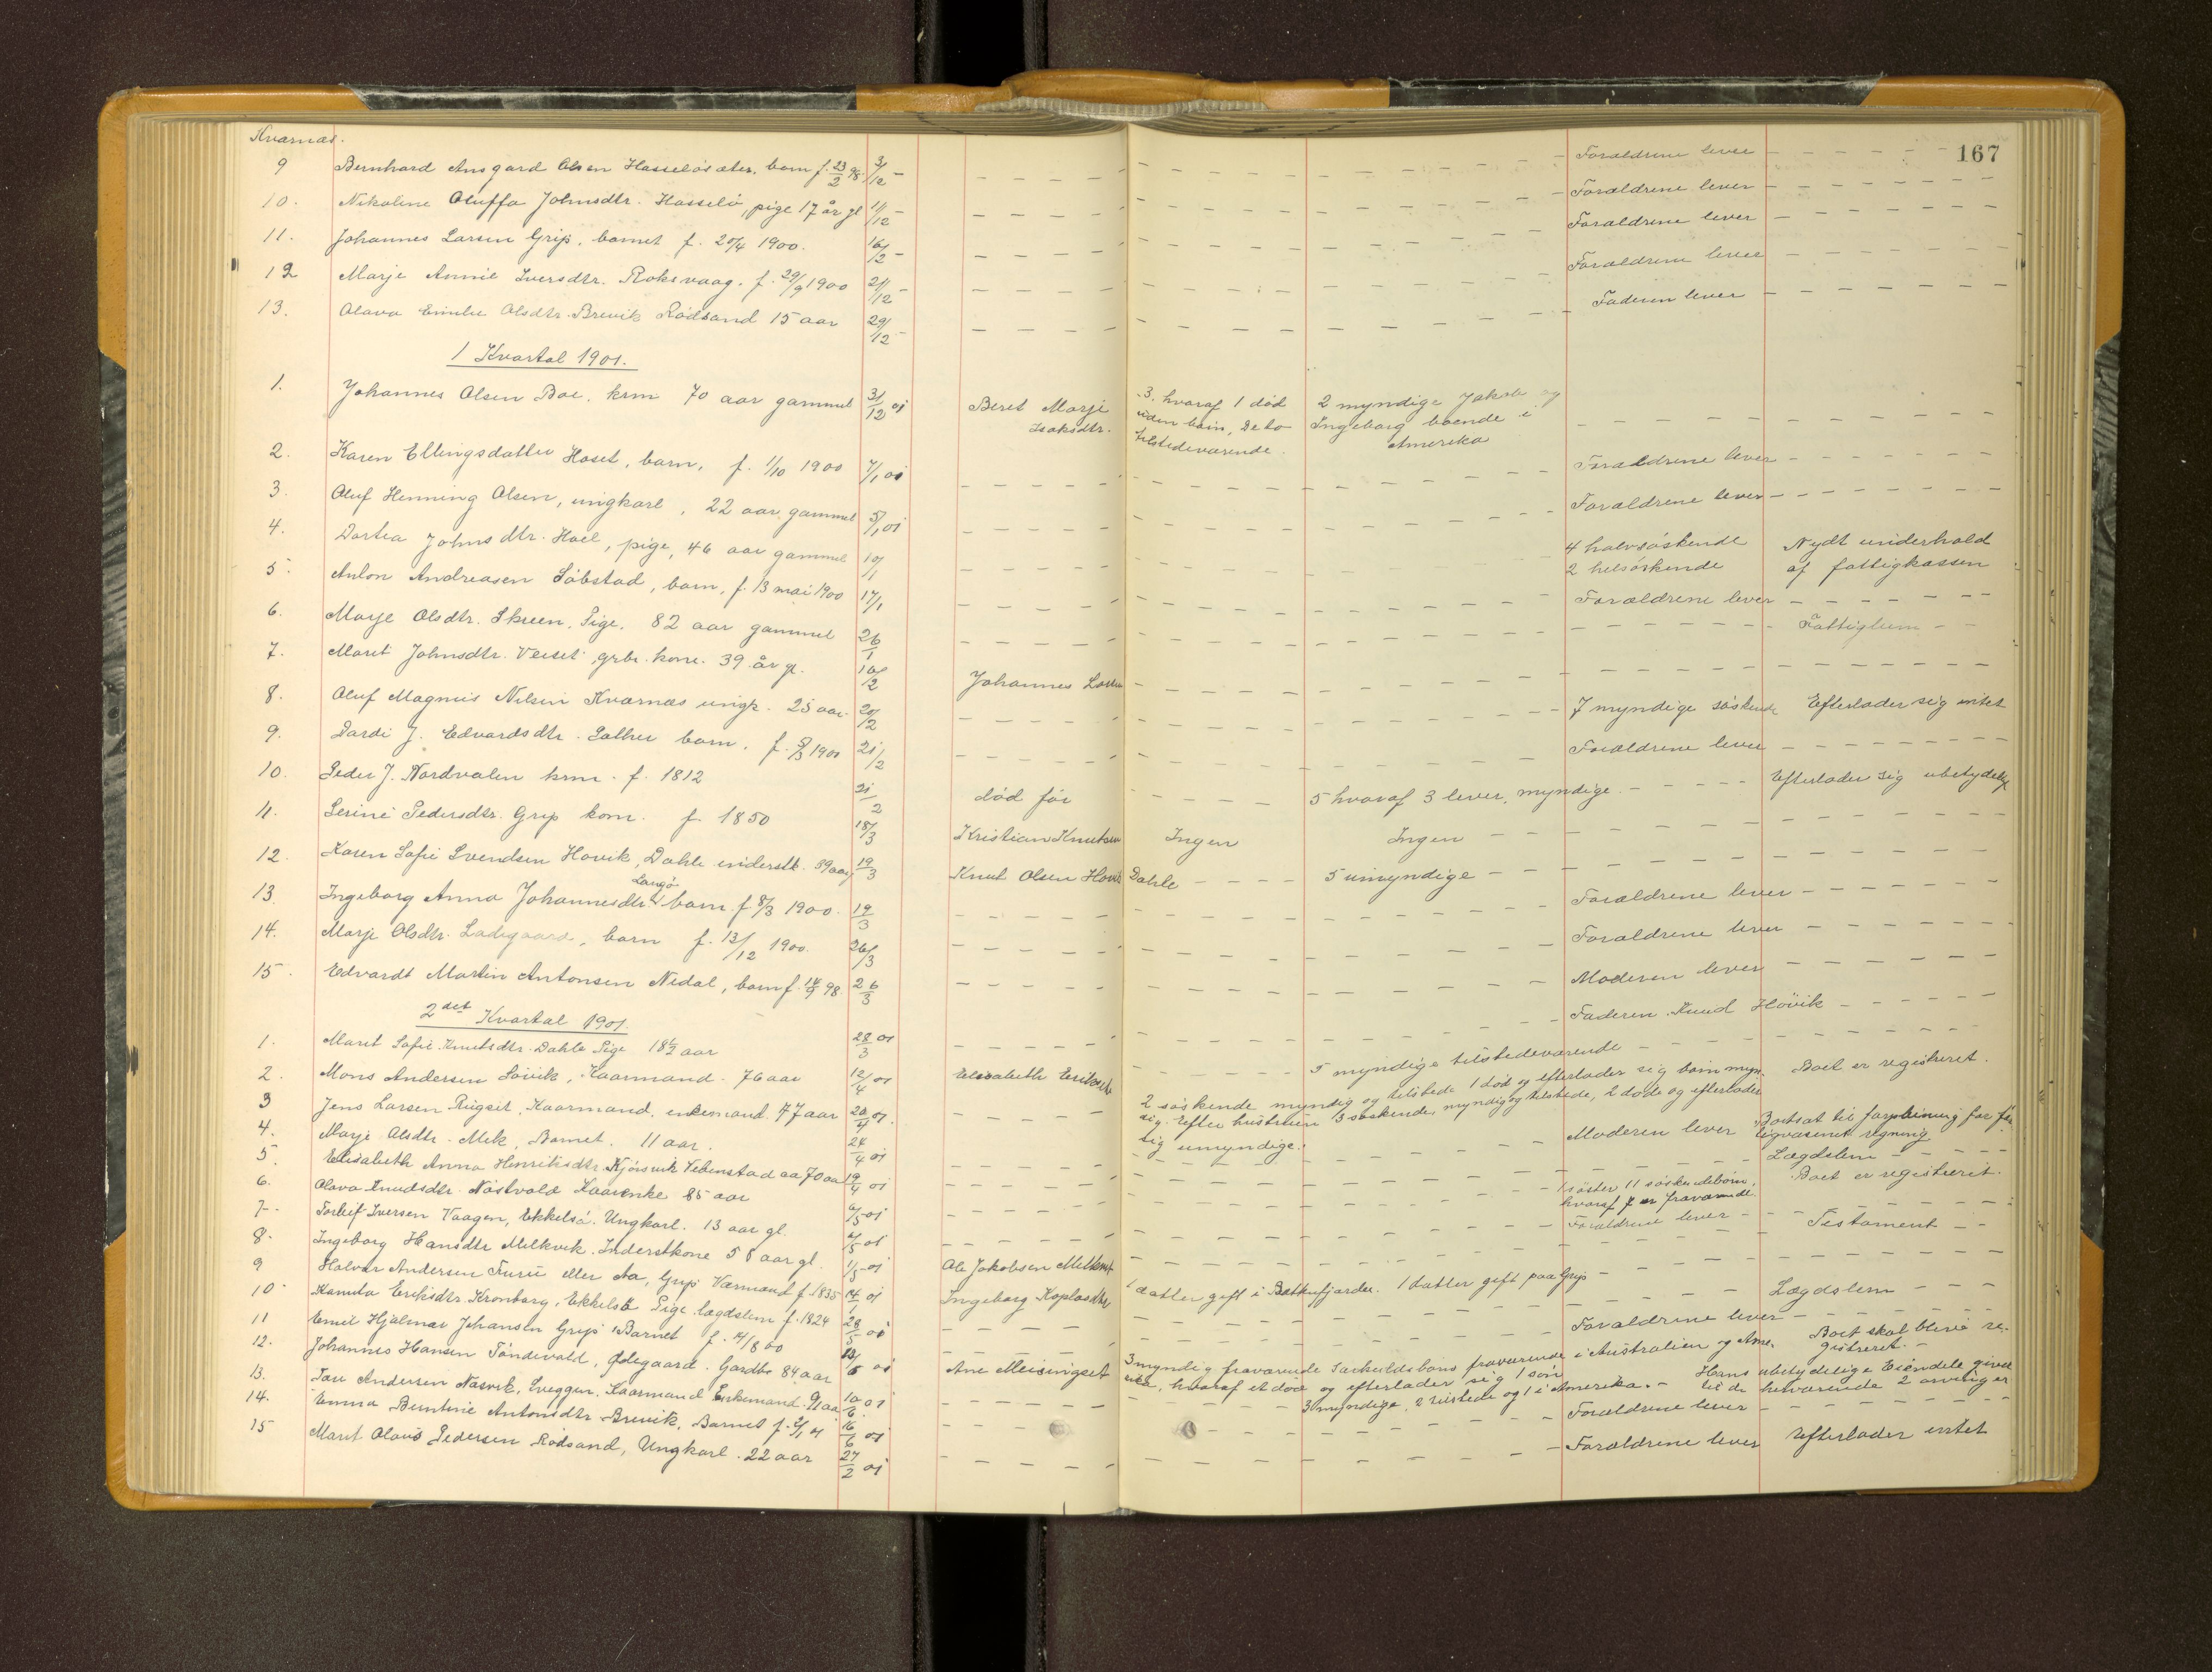 Kværnæs.
167
9 Bernhard Ansgard Olsen Hasseløsæter, barn f. 23/2 98. 3/12 - Forældrene lever
10. Nikoline Oluffa Johnsdtr. Hasselø, pige 17 år gl 11/12 - Forældrene lever
11. Johannes Larsen Grip, barnet f. 20/4 1900. 16/12 - Forældrene lever
12 Marje Annie Iversdtr. Roksvaag. f. 29/9 1900 21/12 - Forældrene lever
13. Olava Emilie Olsdtr. Brevik Rødsand 15 aar 29/12 - Faderen lever
1 Kvartal 1901.
1. Johannes Olsen Boe, krm 70 aar gammel 31/12 01 Beret Marje Isaksdtr. 3. hvoraf 1 død uden børn, De to tilstedeværende. 2 myndige Jakob og Ingeborg boende i Amerika
2. Karen Ellingsdatter Hoset, barn, f. 1/10 1900 7/1 01 Forældrene lever
3. Oluf Henning Olsen, ungkarl, 22 aar gammel 5/1 01 Forældrene lever
4. Dortea Johnsdtr. Hoel, pige, 46 aar gammel 10/1 4 halvsøskende 2 helsøskende Nydt underhold af fattigkassen
5. Anton Andreasen Søbstad, barn, f. 13 mai 1900 17/1 Forældrene lever
6. Marje Olsdtr. Skreen, Pige. 82 aar gammel 26/1 Fattiglem
7. Marit Johnsdtr. Veiset, grbr. kone. 39 år gl. 10/2 Johannes Larsen
8. Oluf Magnus Nilsen Kværnæs ungk. 25 aar. 20/2 7 myndige søskende Efterlader sig intet
9. Dardi J. Edvardsdtr. Sather barn, f. 1900 21/2 Forældrene lever
10. Peder J. Nordvalen krm. f. 1812 21/2 død før 5 hvoraf 3 lever, myndige. Efterlader sig ubetydelig
11. Serine Pedersdtr. Grip kone. f 1850 18/3 Kristian Knutsen Ingen Ingen
12. Karen Sofie Svendsen Hovik, Dahle inderstk. 39 aar 19/3 Knut Olsen Hovik Dahle 5 umyndige
13. Ingeborg Anna Johannesdtr. Langø barn f 8/3 1900. 19/3 Forældrene lever
14. Marje Olsdtr. Ladegaard, barn f. 13/12 1900. 26/3 Forældrene lever
15. Edvardt Martin Antonsen Nedal, barn f. 14/9 98. 26/3 Moderen lever
2det Kvartal 1901.
1. Marit Sofie Knutsdtr. Dahle Pige 18½ aar 28/3 01 Faderen Knud Høvik
2. Mons Andersen Løvik, Kaarmand. 76 aar 12/4 01 Elisabeth Eriksdtr 5 myndige tilstedeværende Boet er registreret.
3 Jens Larsen Rugset, Kaarmand, enkemand 77 aar 20/4 01. 2 søskende myndig og tilstede 1 død og efterlader sig børn myn. sig. Efter hustruen 3 søskende, myndig og tilstede, 2 døde og efterlader sig umyndige.
4. Marje Olsdtr. Mek, Barnet. 11 aar. 24/4 01 Moderen lever Bortsat til forpleining for fattigvæsenets regning
5. Elisabeth Anna Henriksdtr. Kjørsvik Vebenstad aa 70 aar 19/4 01 Lægdslem
6. Olava Knudsdtr. Nøstvold Kaarenke 85 aar 01 1 søster 11 søskendebørn, hvoraf 7 er fraværende. Boet er registreret.
7. Torleif Iversen Vaagen, Ekkelsø. Ungkarl. 13 aar gl. 01 Forældrene lever
8. Ingeborg Hansdtr Melkvik. Inderstkone 58 aar gl. 1/5 01 Ole Jakobsen Melkvik Testament
9 Halvor Andersen Furu eller Aa, Grip Værmand f. 1835 14/1 01 Ingeborg 1 datter gift i Battnfjorden. 1 datter gift paa Grip
10. Kamila Eriksdtr. Kronborg, Ekkelsø Pige lægdslem f. 1824 01 Lægdslem
11 Emil Hjalmar Johansen Grip Barnet f. 14/8 00 28/5 01 Forældrene lever
12. Johannes Hansen Tøndevold, Ødegaard. Gardbr 84 aar 01 Ane Meisingset 3 myndig fraværende i Australien og Ame- rika, hvoraf et død og efterlader sig 1 søn Boet skal blive re- gistreret.
13. Tore Andersen Nasvik, Sveggen. Kaarmand Enkemand. 91 aar 10/6 01 3 myndige, 2 tilstede og 1 i Amerika. Hans ubetydelige Eiendele givet til de hieværende 2 arvinger
14. Emma Berntine Antonsdtr. Brevik, Barnet f. 01 16/6 01 Forældrene lever
15 Marit Olavs Pedersen Rødsand, Ungkarl. 22 aar 27/2 01 Forældrene lever Efterlader intet